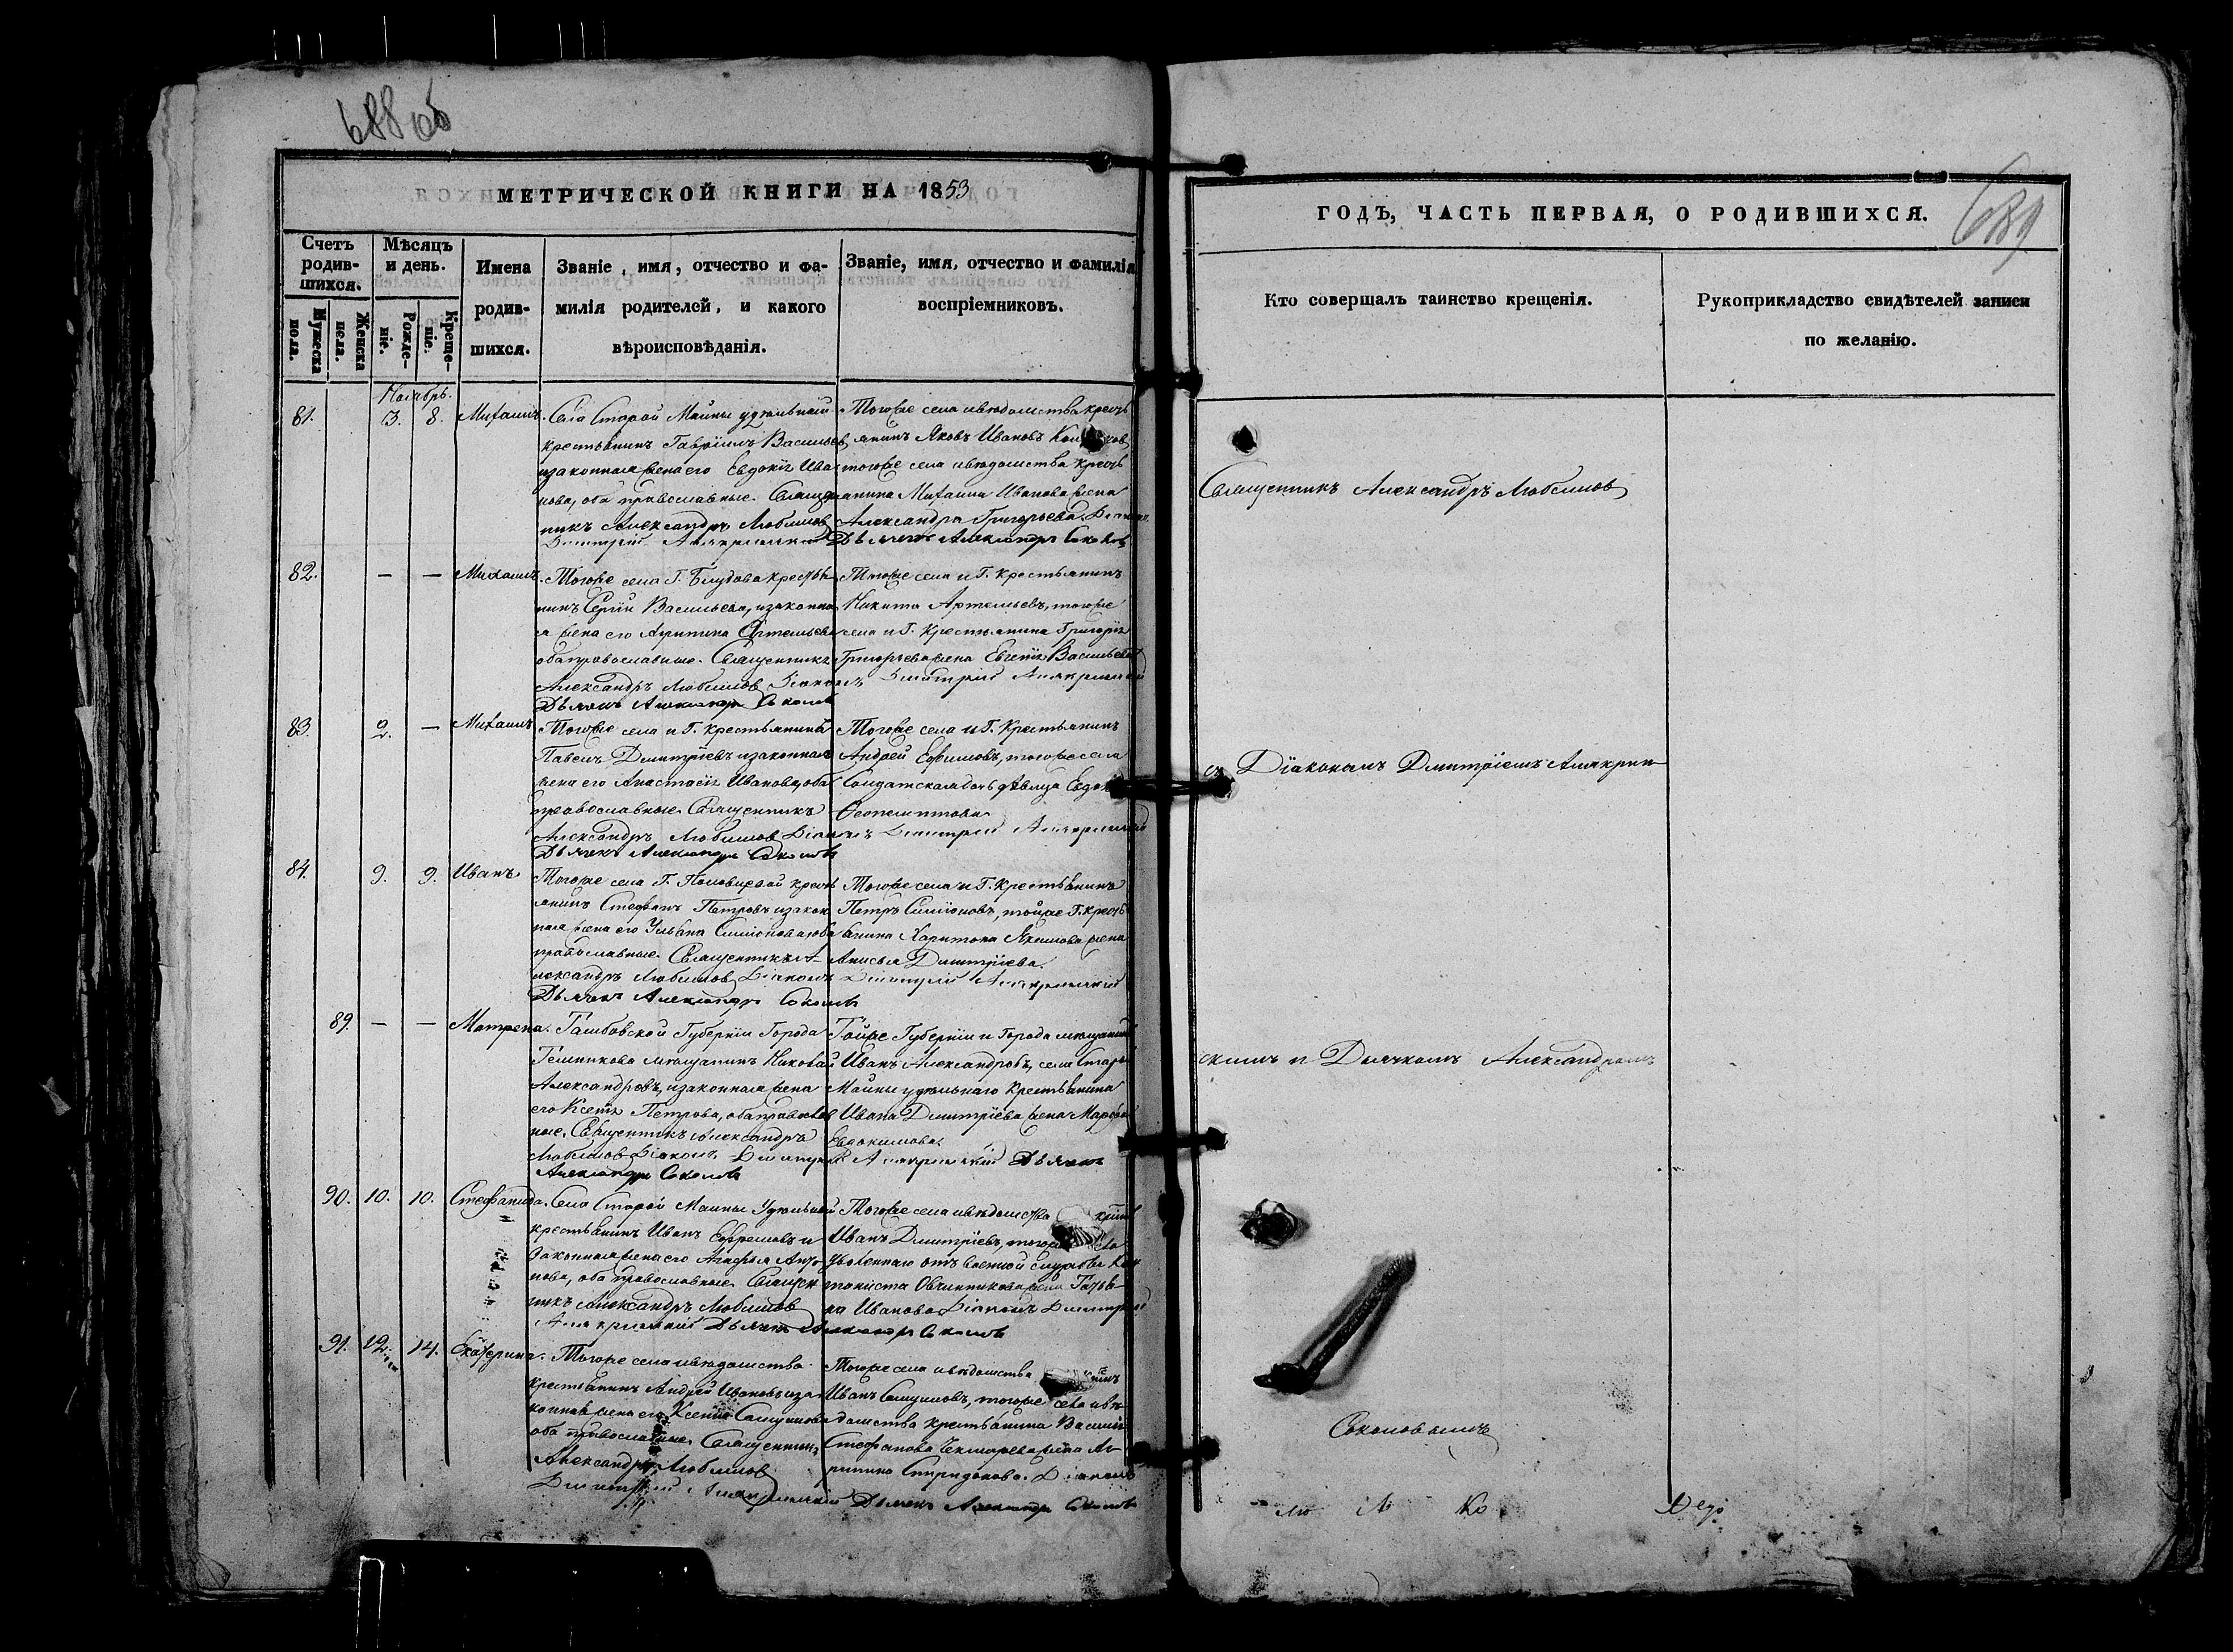 688 об
МЕТРИЧЕСКОЙ КНИГИ НА 1853
Счетъ родив-шихся.
Мужеска пола.
Женска пола.
Мѣсяцъ и день.
Рожде-ніе.
Креще-ніе.
Имена родив-шихся.
Званіе, имя, отчество и фа-
милія родителей, и какого
вѣроисповѣданія.
Званіе, имя, отчество и фамилія
воспріемниковъ.
Ноябрь.
81. 3. 8. Михаилъ.
Села Старой Майны удѣльный
крестьянинъ Гавріилъ Васильев
и законная жена его Евдокія Ива
нова, оба православные. Священ
никъ Александръ Любимов
Димитрій
Тогоже села и вѣдомства кресть
янинъ Яковъ Ивановъ
тогоже села и вѣдомства кресть
янина Михаила Иванова жена
Александра Григорьева. Діаконъ
Дьячекъ Александръ Соколов
82. — — Михаилъ.
Тогоже села Г. Блудова крестья
нинъ Сергій Васильевъ, и законна
я жена его Артемьева
оба православные. Священникъ
Александръ Любимов Діаконъ Димитрій
Дьячекъ Александръ Соколов
Тогоже села и Г. крестьянинъ
Никита Артемьевъ, тогоже
села и Г. крестьянина Григорія
Григорьева жена Евгенія Васильева
83. 2. — Михаилъ
Тогоже села и Г. крестьянинъ
Павелъ Дмитріевъ и законная
жена его Анастасія Иванова, оба
православные. Священникъ
Александръ Любимов Діаконъ Димитрій
Дьячекъ Александръ Соколов
Тогоже села и Г. Крестьянинъ
Андрей Ефимовъ, тогоже села
Солдатская дочь дѣвица
84. 9. 9. Иванъ.
Тогоже села Г. кресть
янинъ Стефанъ Петровъ и закон
ная жена его Ульяна Симіонова, оба
православные. Священникъ А-
лександръ Любимов Діаконъ Димитрій
Дьячекъ Александръ Соколов
Тогоже села и Г. Крестьянинъ
Петръ Симіоновъ, тойже Г. кресть
янина Харитона Якимова жена
Анисья Дмитріева.
89. — — Матрена.
Тамбовской Губерніи Города
Темникова мѣщанинъ Николай
Александровъ, и законная жена
его Ксенія Петрова, оба православ
ные. Священникъ Александръ
Любимов Діаконъ Димитрій
Александръ Соколов
Тойже Губерніи и Города мѣщанинъ
Иванъ Александровъ, села Старой
Майны удѣльнаго Крестьянина
Ивана Дмитріева жена Марфа
Евдокимова.
Дьячекъ
90. 10. 10. Стефанида.
Села Старой Майны Удѣльный
крестьянинъ Иванъ Ефремовъ и
законная жена его Агафья Анто
нова, оба православные. Священ
никъ Александръ Любимов
Дьячекъ Александръ Соколов
Тогоже села и вѣдомства
Иванъ Дмитріевъ, тогоже
уволеннаго отъ военной службы Кан
тониста Овчинникова жена Татья-
на Иванова. Діаконъ Димитрій
91. 12. 14. Екатерина.
Тогоже села и вѣдомства
крестьянинъ Андрей Ивановъ и за
конная жена его Ксенія Самуилова
оба православные. Священникъ
Александръ Любимов
Димитрій
Тогоже села и вѣдомства
Иванъ Самуиловъ, тогоже села и вѣ-
домства крестьянина Василія
Стефанова Чекмарева жена Аг-
рипина Спиридонова. Діаконъ
Дьячекъ Александръ Соколов
689
ГОДЪ, ЧАСТЬ ПЕРВАЯ, О РОДИВШИХСЯ.
Кто совершалъ таинство крещенія.
Рукоприкладство свидѣтелей записи
по желанію.
Священникъ Александръ Любимов
съ Діакономъ Дмитріемъ Алякрин-
скимъ и Дьячкомъ Александромъ
Соколовымъ